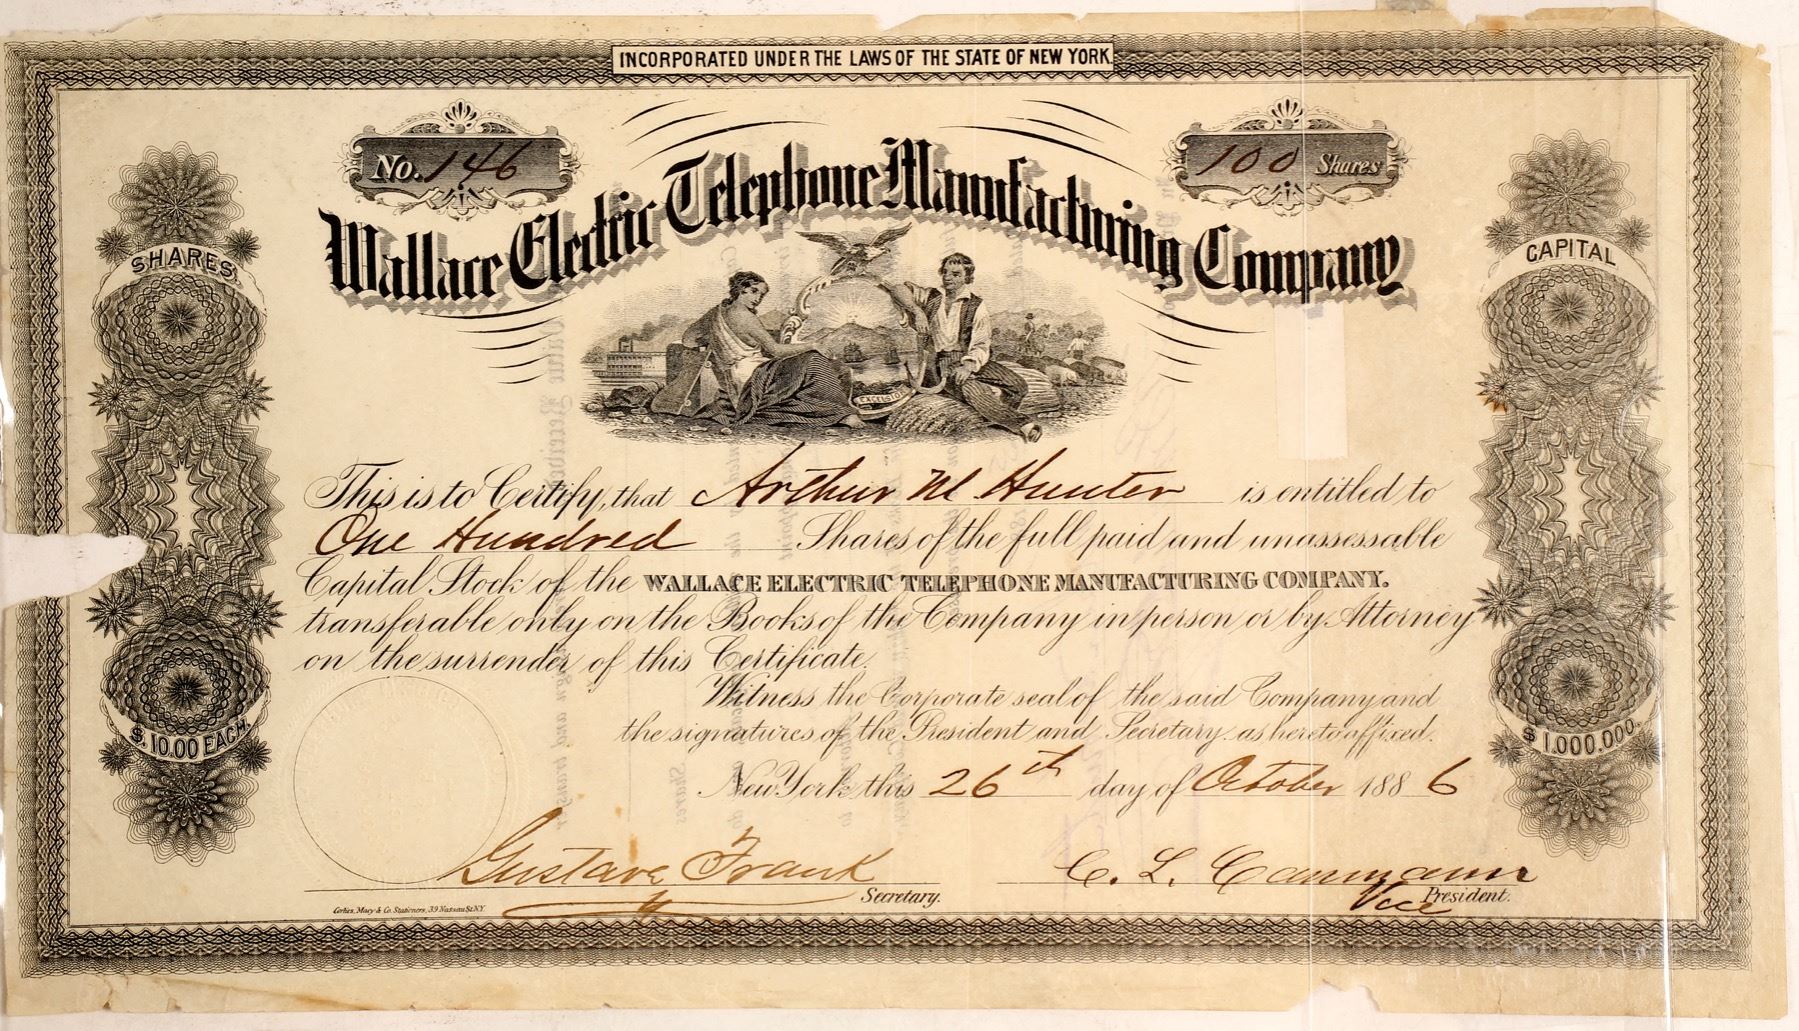 INCORPORATED UNDER THE LAWS OF THE STATE OF NEW YORK.
No. 146
100 Shares
Wallace Electric Telephone Manufacturing Company
SHARES
$.10.00 EACH.
CAPITAL
$1.000.000.
EXCELSIOR
This is to Certify, that Arthur M Hunter is entitled to
One Hundred Shares of the full paid and unassessable
Capital Stock of the WALLACE ELECTRIC TELEPHONE MANUFACTURING COMPANY.
transferable only on the Books of the Company in person or by Attorney
on the surrender of this Certificate.
Witness the Corporate seal of the said Company and
the signatures of the President and Secretary as hereto affixed.
New York this 26th day of October 1886
Gustave Frank
Secretary.
C. L.
Vice President.
Corlies, Macy & Co. Stationers, 39 Nassau St. N.Y.